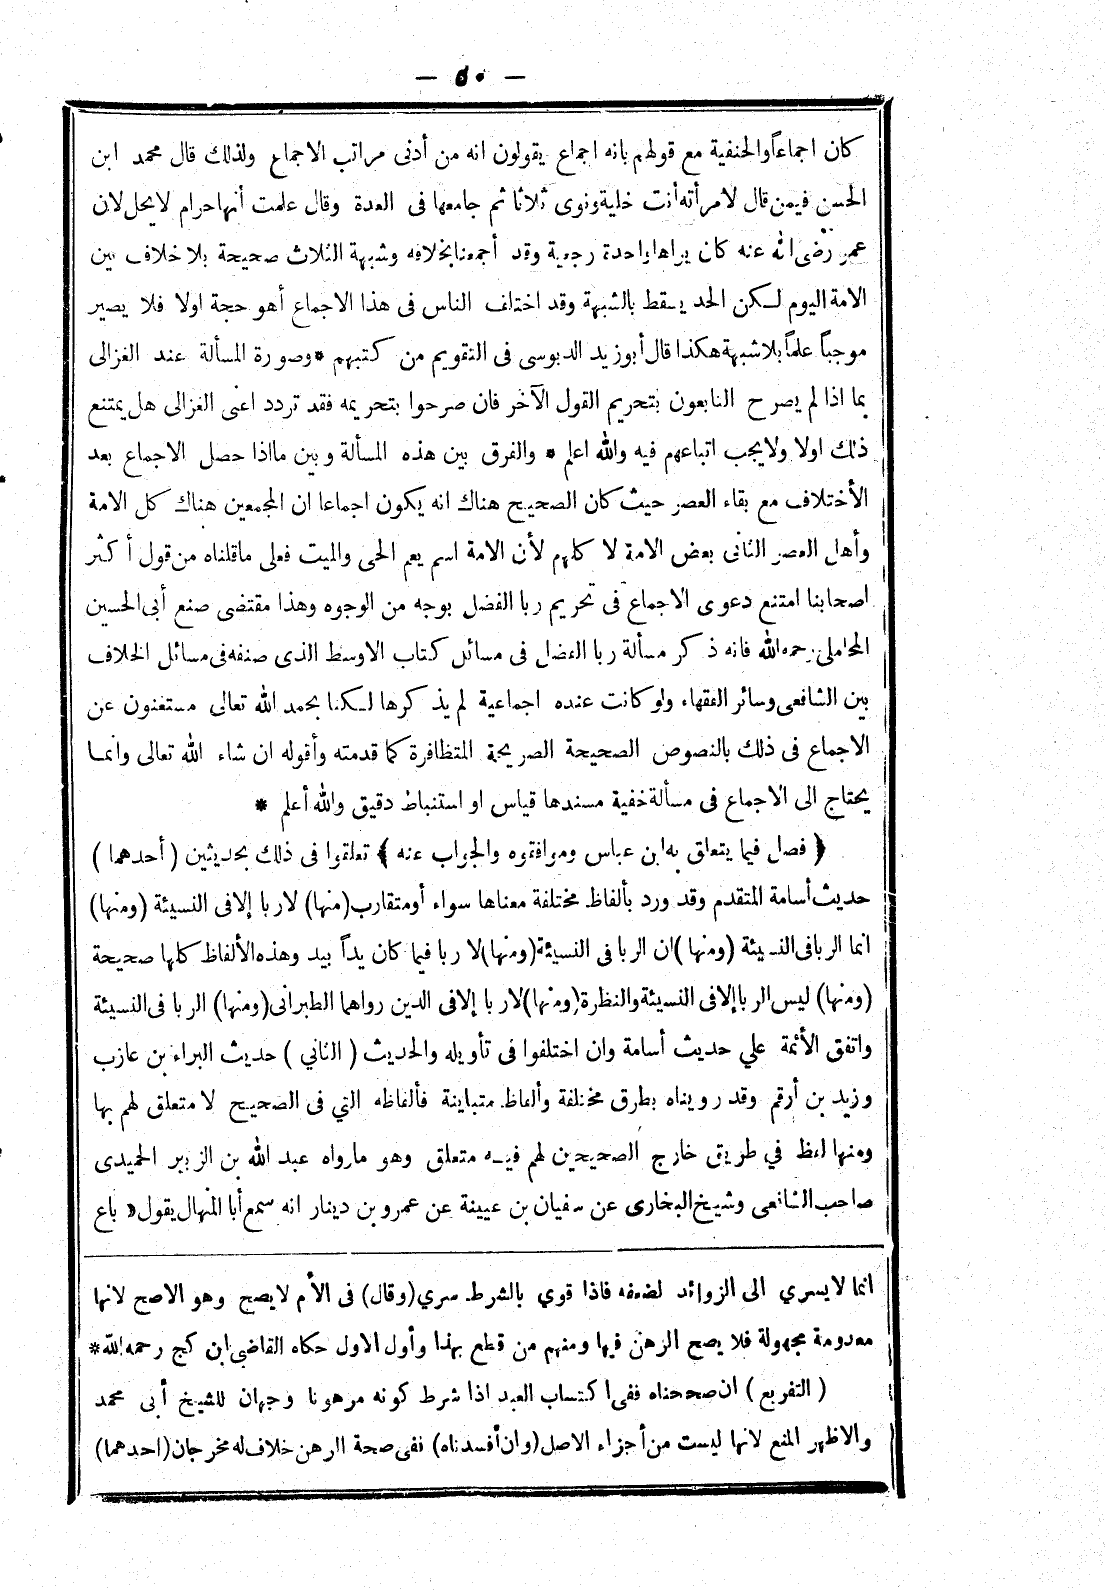 — ٥٠ —
كان اجماعاً والحنفية مع قولهم بانه اجماع يقولون انه من أدنى مراتب الاجماع ولذلك قال محمد ابن
الحسن فيمن قال لامرأته أنت خلية ونوى ثلاثا ثم جامعها فى العدة وقال علمت أنها حرام لايحل لان
عمر رضى الله عنه كان يراها واحدة رجعية وقد أجمعنا بخلافه وشبهة الثلاث صحيحة بلا خلاف بين
الامة اليوم لكن الحد يسقط بالشبهة وقد اختلف الناس فى هذا الاجماع أهو حجة اولا فلا يصير
موجباً علماً بلاشبهة هكذا قال أبوزيد الدبوسى فى التقويم من كتبهم * وصورة المسألة عند الغزالى
بما اذا لم يصرح التابعون بتحريم القول الآخر فان صرحوا بتحريمه فقد تردد اعنى الغزالى هل يمتنع
ذلك اولا ولايجب اتباعهم فيه والله اعلم * والفرق بين هذه المسألة وبين مااذا حصل الاجماع بعد
الأختلاف مع بقاء العصر حيث كان الصحيح هناك انه يكون اجماعا ان المجمعين هناك كل الامة
وأهل العصر الثانى بعض الامة لا كلهم لأن الامة اسم يعم الحى والميت فعلى ماقلناه من قول أكثر
اصحابنا امتنع دعوى الاجماع فى تحريم ربا الفضل بوجه من الوجوه وهذا مقتضى صنع أبى الحسين
المحاملى رحمه الله فانه ذكر مسألة ربا الفضل فى مسائل كتاب الاوسط الذى صنفه فى مسائل الخلاف
بين الشافعى وسائر الفقهاء ولو كانت عنده اجماعية لم يذكرها لكنا بحمد الله تعالى مستغنون عن
الاجماع فى ذلك بالنصوص الصحيحة الصريحة المتظافرة كما قدمته وأقوله ان شاء الله تعالى وانما
يحتاج الى الاجماع فى مسألة خفية مسندها قياس او استنباط دقيق والله أعلم *
﴿ فصل فيما يتعلق به ابن عباس وموافقوه والجواب عنه ﴾ تعلقوا فى ذلك بحديثين (أحدهما)
حديث أسامة المتقدم وقد ورد بألفاظ مختلفة معناها سواء أومتقارب (منها) لاربا إلافى النسيئة (ومنها)
انما الربا فى النسيئة (ومنها) ان الربا فى النسيئة (ومنها) لا ربا فيما كان يداً بيد وهذه الألفاظ كلها صحيحة
(ومنها) ليس الربا إلافى النسيئة والنظرة (ومنها) لاربا إلافى الدين رواهما الطبرانى (ومنها) الربا فى النسيئة
واتفق الأئمة علي حديث أسامة وان اختلفوا فى تأويله والحديث (الثاني) حديث البراء بن عازب
وزيد بن أرقم وقد رويناه بطرق مختلفة وألفاظ متباينة فألفاظه التي فى الصحيح لا متعلق لهم بها
ومنها لفظ في طريق خارج الصحيحين لهم فيه متعلق وهو مارواه عبد الله بن الزبير الحميدى
صاحب الشافعى وشيخ البخارى عن سفيان بن عيينة عن عمرو بن دينار انه سمع أبا المنهال يقول « باع
انما لايسري الى الزوائد لضعفه فاذا قوي بالشرط سري (وقال) فى الأم لايصح وهو الاصح لانها
معدومة مجهولة فلا يصح الرهن فيها ومنهم من قطع بهذا وأول الاول حكاه القاضى ابن كج رحمه الله *
(التفريع) ان صححناه ففى اكتساب العبد اذا شرط كونه مرهونا وجهان للشيخ أبى محمد
والاظهر المنع لانها ليست من أجزاء الاصل (وان أفسدناه) ففى صحة الرهن خلاف له مخرجان (احدهما)